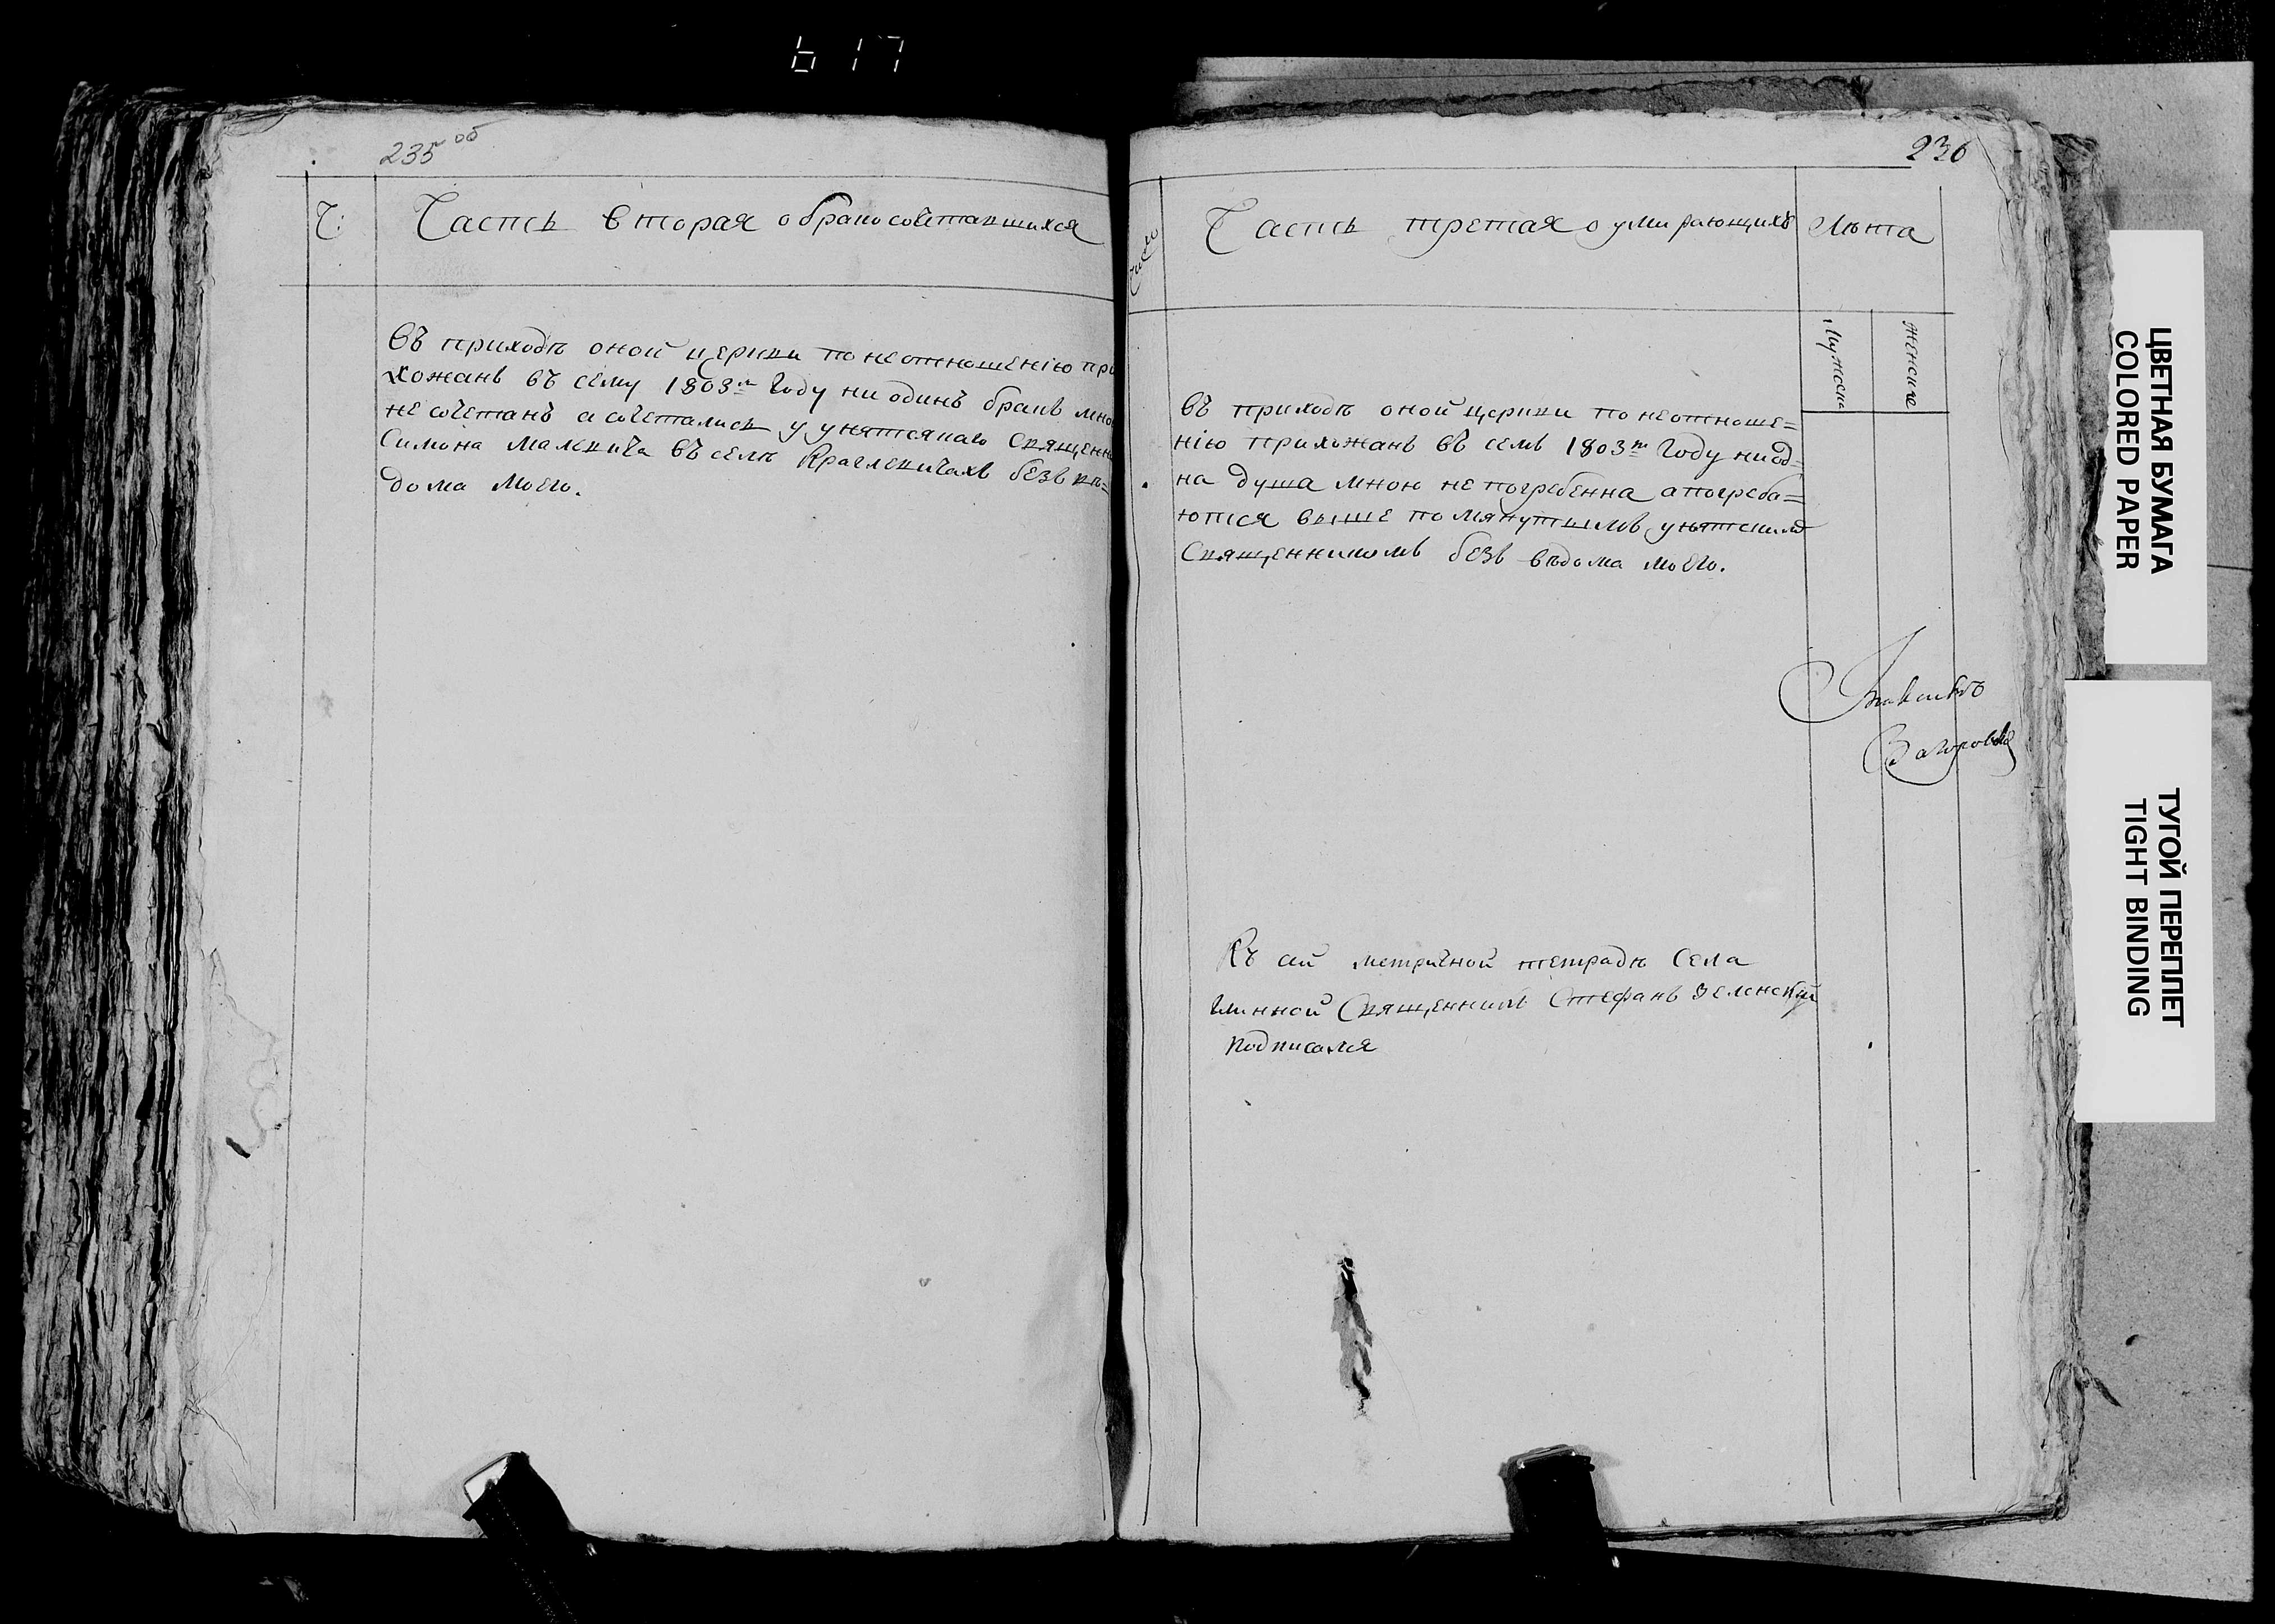 617
235 об
Ч:
Часть вторая о браносочетавшихся
Въ приходѣ оной церкви по неотношенію при
хожанъ въ сему 1803м Году ни одинъ бракъ мно
не сочетанъ а сочеталисъ у уніятскаго Священн
Симона Малевича въ селѣ Краглевичахъ безъ вѣ=
дома моего.
236
Число
Часть третая о умирающихъ
Лѣта
Мужеска
Женске
Въ приходѣ оной церкви по неотноше=
нію прихожанъ въ семъ 1803м Году ни од=
на душа мною не погребенна а погреба=
ются выше помянутымъ уніятскимъ
Священникомъ безъ вѣдома моего.
Къ сей метричной тетрадѣ Села
Священникъ Стефанъ Зеленскій
подписался
ЦВЕТНАЯ БУМАГА
COLORED PAPER
ТУГОЙ ПЕРЕПЛЕТ
TIGHT BINDING